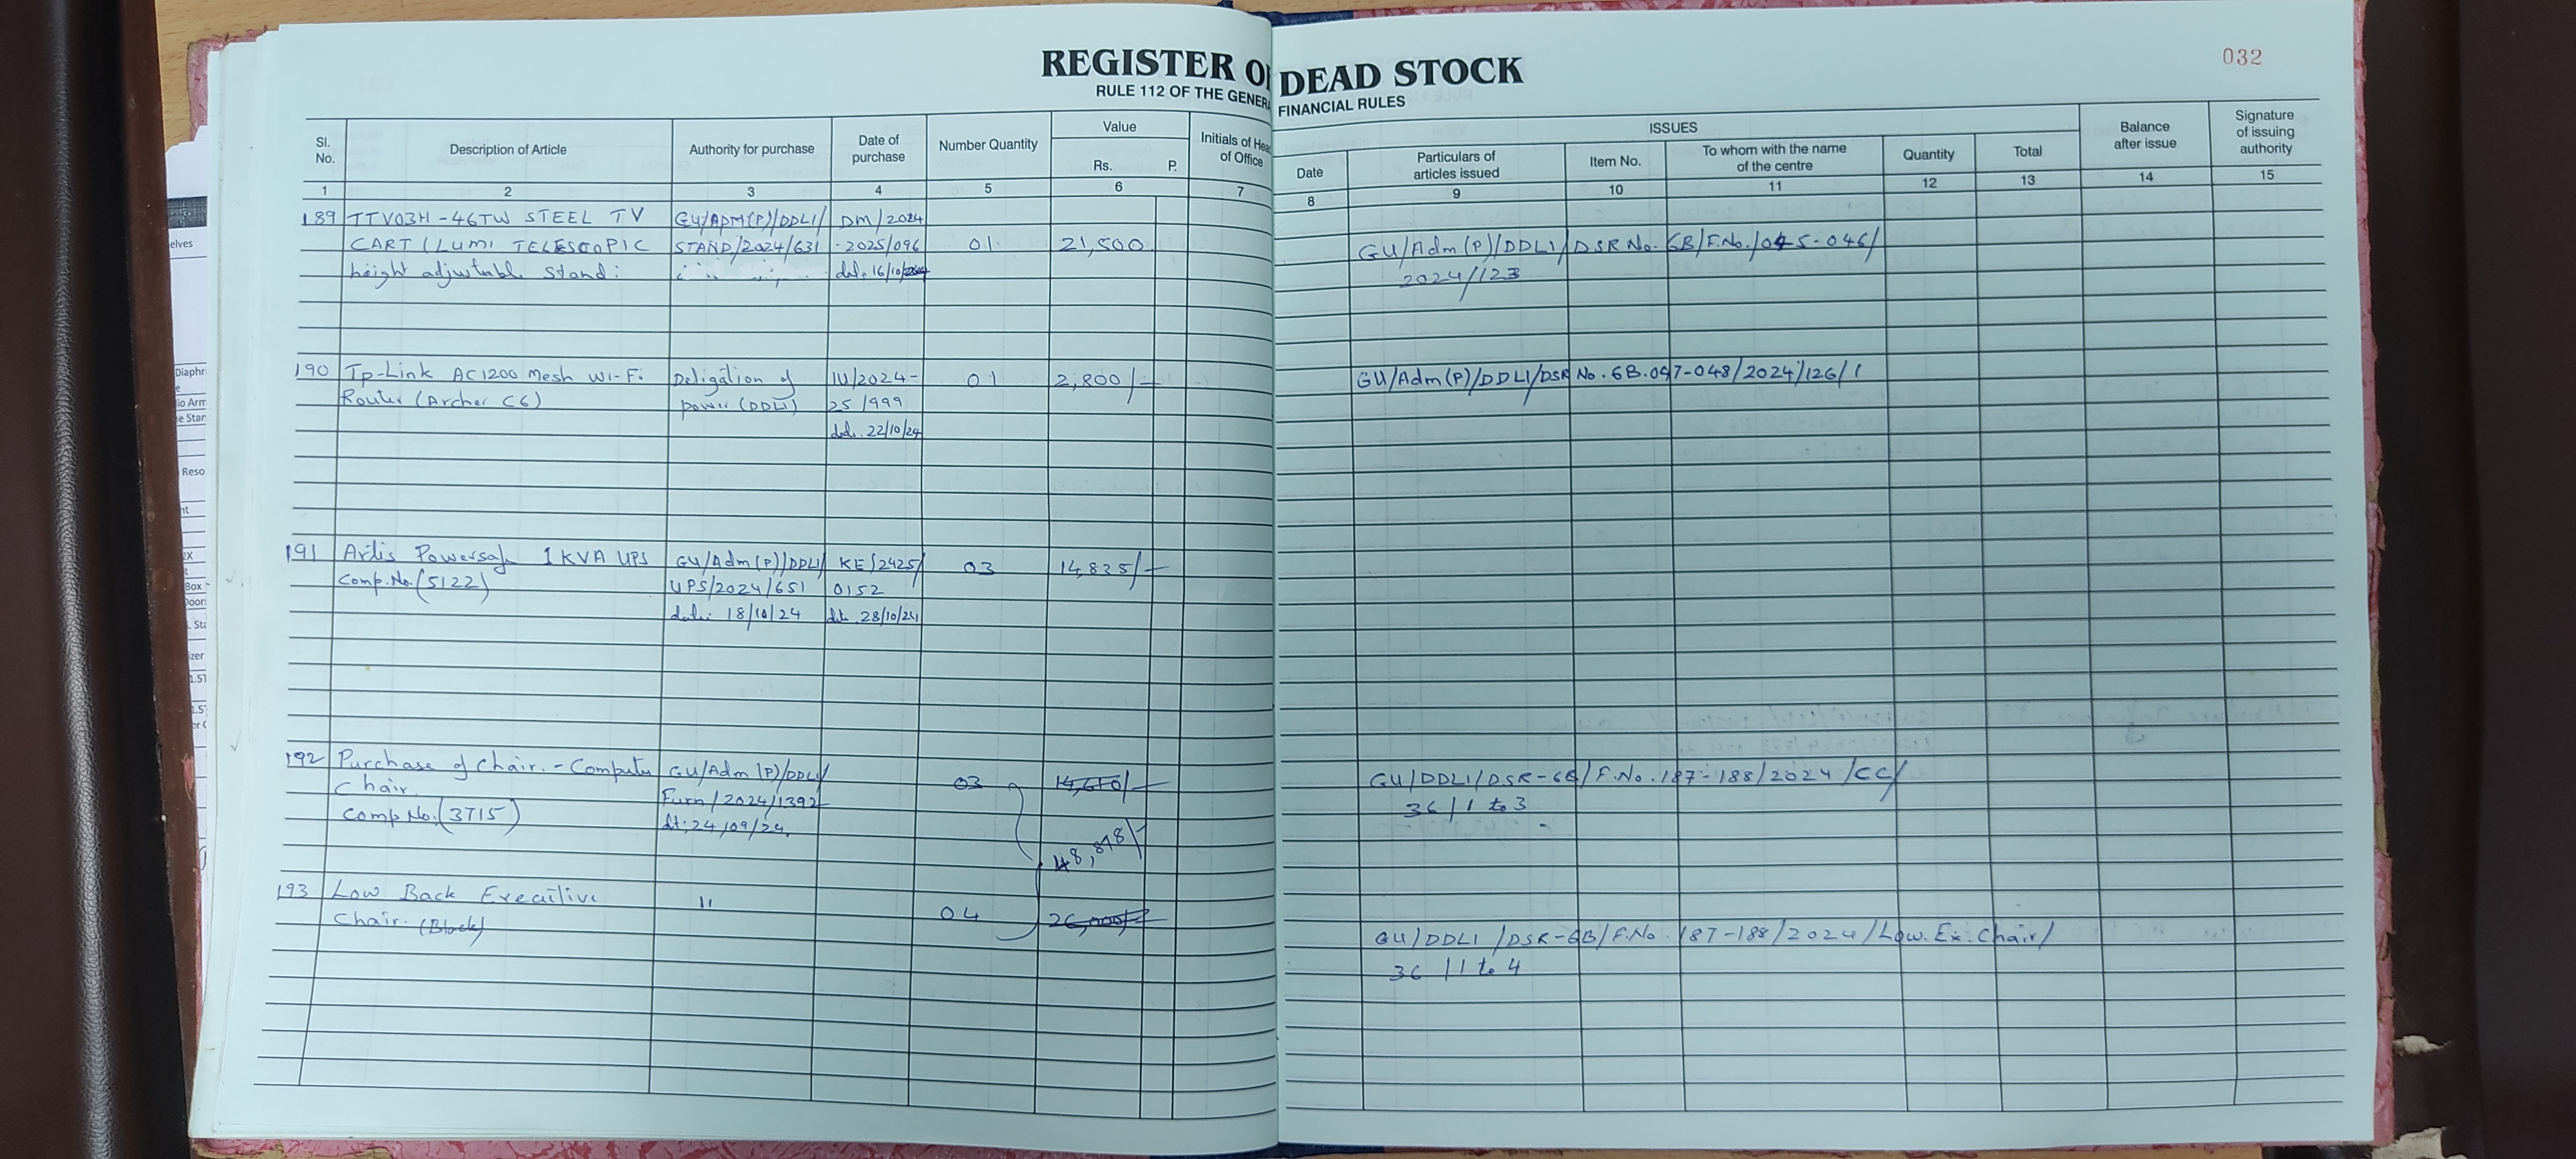 032
REGISTER OF DEAD STOCK
RULE 112 OF THE GENERA FINANCIAL RULES
Sl. No.
Description of Article
Authority for purchase
Date of purchase
Number Quantity
Value
Rs. P.
Initials of Head of Office
ISSUES
Date
Particulars of articles issued
Item No.
To whom with the name of the centre
Quantity
Total
Balance after issue
Signature of issuing authority
1 2 3 4 5 6 7 8 9 10 11 12 13 14 15
189 TTV03H-46TW STEEL TV GU/ADM(P)/DDLI/ DM/2024
CART (LUMI TELESCOPIC STAND/2024/631 -2025/096 01 21,500 GU/Adm(P)/DDLI/DSR No. 6B/F.No./045-046/
height adjustable stand: dt. 16/10/2024 2024/123
190 Tp-Link AC1200 Mesh Wi-Fi Deligation of IU/2024- 01 2,800/- GU/Adm(P)/DDLI/DSR No. 6B.047-048/2024/126/1
Router (Archer C6) power (DDLI) 25/999
dt. 22/10/24
191 Artis Powersafe 1KVA UPS GU/Adm(P)/DDLI/ KE/2425/ 03 14,835/-
Comp.No.(5122) UPS/2024/651 0152
date: 18/10/24 dt. 28/10/24
192 Purchase of Chair.-Computer GU/Adm(P)/DDLI/ 03 GU/DDLI/DSR-6B/F.No.187-188/2024/CC/
Chair. Furn/2024/1392 36/1 to 3
Comp No.(3715) dt:24/09/24.
48,898/-
193 Low Back Executive "
Chair. (Black) 04 26,000/- GU/DDLI/DSR-6B/F.No.187-188/2024/Low.Ex.Chair/
36/1 to 4
elves
Diaphr
e
io Arm
e Star
Reso
nt
EX
t
Box -
Door